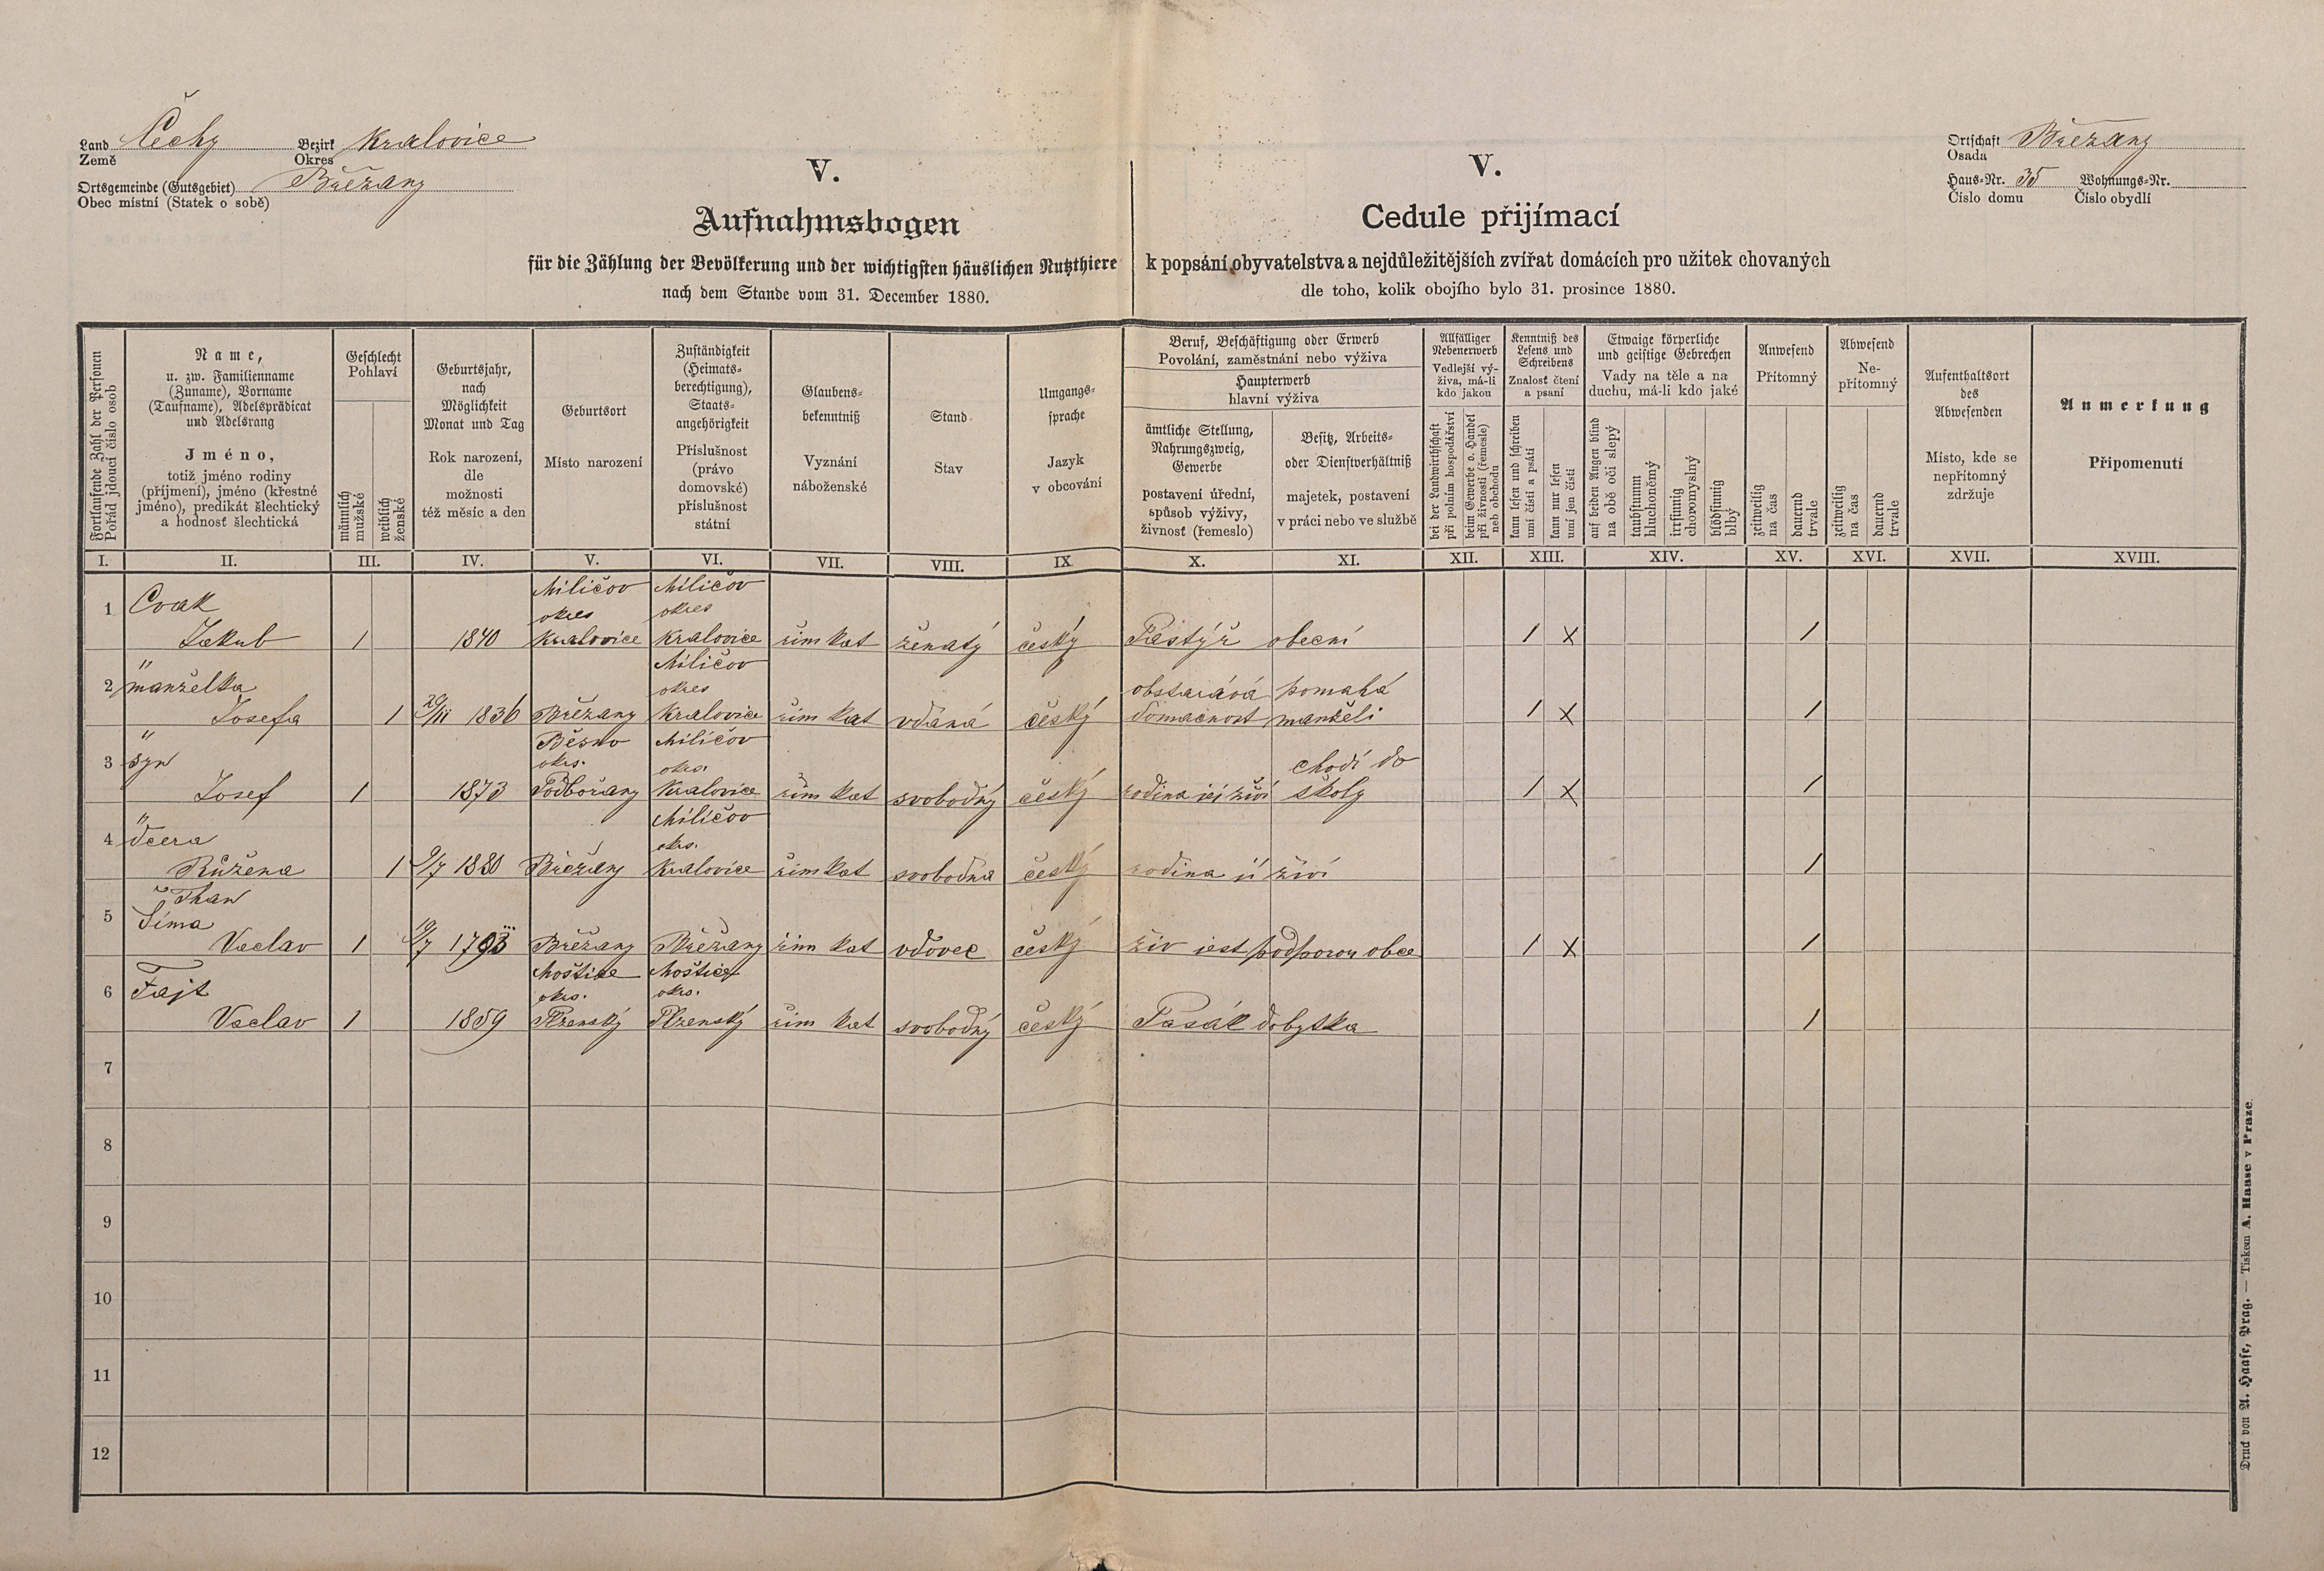 Land Čechy Bezirk Kralovice
Země Okres
Ortsgemeinde (Gutsgebiet) Břežany
Obec místní (Statek o sobě)
V.
Aufnahmsbogen
für die Zählung der Bevölkerung und der wichtigsten häuslichen Nutzthiere
nach dem Stande vom 31. December 1880.
V.
Cedule přijímací
k popsání obyvatelstva a nejdůležitějších zvířat domácích pro užitek chovaných
dle toho, kolik obojího bylo 31. prosince 1880.
Ortschaft Břežany
Osada
Haus-Nr. 35 Wohnungs-Nr.
Číslo domu Číslo obydlí
Fortlaufende Zahl der Personen
Pořád jdoucí číslo osob
Name,
u. zw. Familienname
(Zuname), Vorname
(Taufname), Adelsprädicat
und Adelsrang
Jméno,
totiž jméno rodiny
(příjmení), jméno (křestné
jméno), predikát šlechtický
a hodnosť šlechtická
Geschlecht
Pohlaví
männlich
mužské
weiblich
ženské
Geburtsjahr,
nach
Möglichkeit
Monat und Tag
Rok narození,
dle
možnosti
též měsíc a den
Geburtsort
Místo narození
Zuständigkeit
(Heimats-
berechtigung),
Staats-
angehörigkeit
Příslušnost
(právo
domovské)
příslušnost
státní
Glaubens-
bekenntniß
Vyznání
náboženské
Stand
Stav
Umgangs-
sprache
Jazyk
v obcování
Beruf, Beschäftigung oder Erwerb
Povolání, zaměstnání nebo výživa
Haupterwerb
hlavní výživa
ämtliche Stellung,
Nahrungszweig,
Gewerbe
postavení úřední,
spůsob výživy,
živnosť (řemeslo)
Besitz, Arbeits-
oder Dienstverhältniß
majetek, postavení
v práci nebo ve službě
Allfälliger
Nebenerwerb
Vedlejší vý-
živa, má-li
kdo jakou
bei der Landwirthschaft
při polním hospodářství
beim Gewerbe o. Handel
při živnosti (řemesle)
neb obchodu
Kenntniß des
Lesens und
Schreibens
Znalosť čtení
a psaní
kann lesen und schreiben
umí čísti a psáti
kann nur lesen
umí jen čísti
Etwaige körperliche
und geistige Gebrechen
Vady na těle a na
duchu, má-li kdo jaké
auf beiden Augen blind
na obě oči slepý
taubstumm
hluchoněmý
irrsinnig
choromyslný
blödsinnig
blbý
Anwesend
Přítomný
zeitweilig
na čas
dauernd
trvale
Abwesend
Ne-
přítomný
zeitweilig
na čas
dauernd
trvale
Aufenthaltsort
des
Abwesenden
Místo, kde se
nepřítomný
zdržuje
Anmerkung
Připomenutí
I. II. III. IV. V. VI. VII. VIII. IX X. XI. XII. XIII. XIV. XV. XVI. XVII. XVIII.
Miličov Miličov
1 Cvak okres okres
Jakub 1 1840 Kralovice Kralovice řim kat ženatý český Pastýř obecní 1 x 1
" Miličov
2 manželka okres obstarává pomahá
Josefa 1 20/III 1836 Břežany Kralovice řim kat vdaná český domacnost manželi 1 x 1
" Běsno Miličov
3 syn okrs. okrs. chodí do
Josef 1 1873 Podbořany Kralovice řim kat svobodný český rodina jej živí školy 1 x 1
" Miličov
4 dcera okrs.
Růžena 1 9/7 1880 Břežany Kralovice řim kat svobodna český rodina ji živí 1
5 Šíma
Vaclav 1 19/7 1793 Břežany Břežany řim kat vdovec český živ jest podporou obce 1 x 1
Moštice Moštice
6 Fajt okrs. okrs.
Vaclav 1 1859 Plzenský Plzenský řim kat svobodný český Pasák dobytka 1
7
8
9
10
11
12
Druck von A. Haase, Prag. — Tiskem A. Haase v Praze.